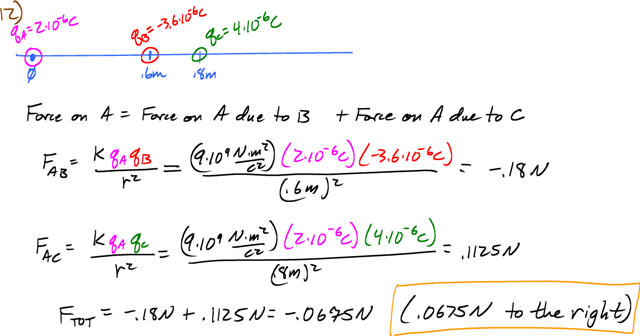 12)
q_A=2·10⁻⁶C q_B=-3.6·10⁻⁶C q_C=4·10⁻⁶C
0 .6m .8m
Force on A = Force on A due to B + Force on A due to C
F_AB = K q_A q_B / r² = (9·10⁹ N·m²/C²)(2·10⁻⁶C)(-3.6·10⁻⁶C) / (.6m)² = -.18N
F_AC = K q_A q_C / r² = (9·10⁹ N·m²/C²)(2·10⁻⁶C)(4·10⁻⁶C) / (.8m)² = .1125N
F_TOT = -.18N + .1125N = -.0675N (.0675N to the right)